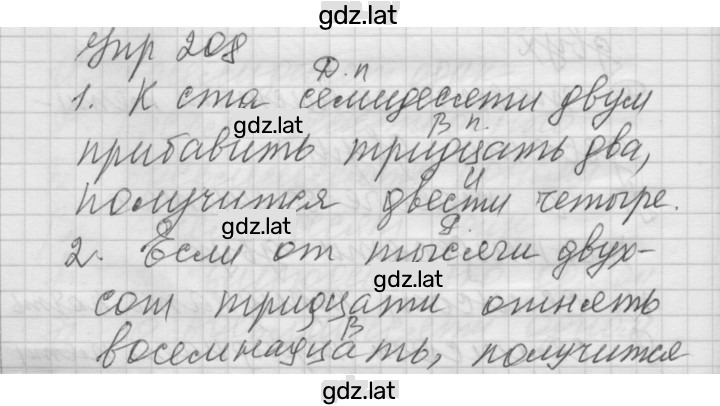 gdz.lat
Упр 208
Д. п
1. К ста семидесяти двум
gdz.lat
В п.
прибавить тридцать два,
И
получится двести четыре.
gdz.lat
Д.
2. Если от тысячи двух-
gdz.lat
сот тридцати отнять
В
восемнадцать, получится
gdz.lat